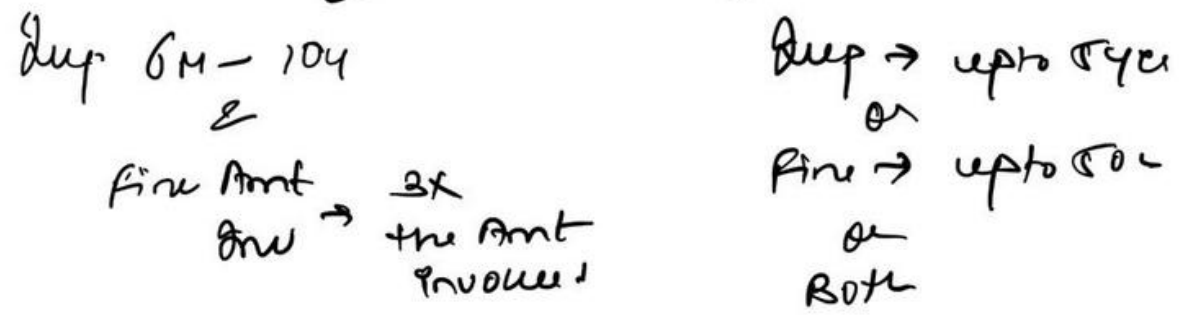 Imp 6M - 10Y
&
Fine Amt
Inv → 3X
the Amt
involved
Imp → upto 5 yrs
or
Fine → upto 50L
or
Both